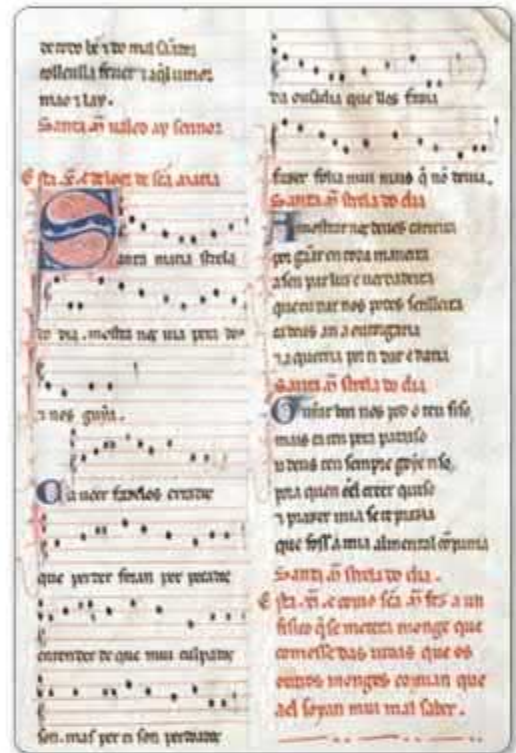 de todo bẽ ⁊ do mal
tolleussa ⁊
mao ⁊ lay.
Santa M̃ ualed ay sennor

Esta .x̃. é de loor de scã maria
Santa maria strela
do dia . mostra nos uia pera deus
⁊ nos guia.
Ca ueer fazelos errados
que perder foran per pecados
entender de que mui culpados
son. mas per ti son perdoados
da ousadia que lles fazia
fazer folia mui mais q̃ nõ deuia.
Santa M̃ strela do dia
Amostrar nos deues carreira
por gãar en toda maneira
a sen par luz e uerdadeira
que tu dar nos podes senlleira
ca deus a ti a outorgaria
⁊ a querria por ti dar e daria
Santa M̃ strela do dia
Guiar ben nos pod o teu siso
mais ca ren pera parayso
u deus ten senpre goy e riso
pora quen en el creer quiso
⁊ prazer mia se te prazia
que foss a mia alma en tal cõpania
Santa M̃ strela do dia .
Esta .x̃. é como scã M̃ fez a un
fisico q̃ se metera monge que
comesse das uidas que os
outros monges comian que
a el soyan mui mal saber .